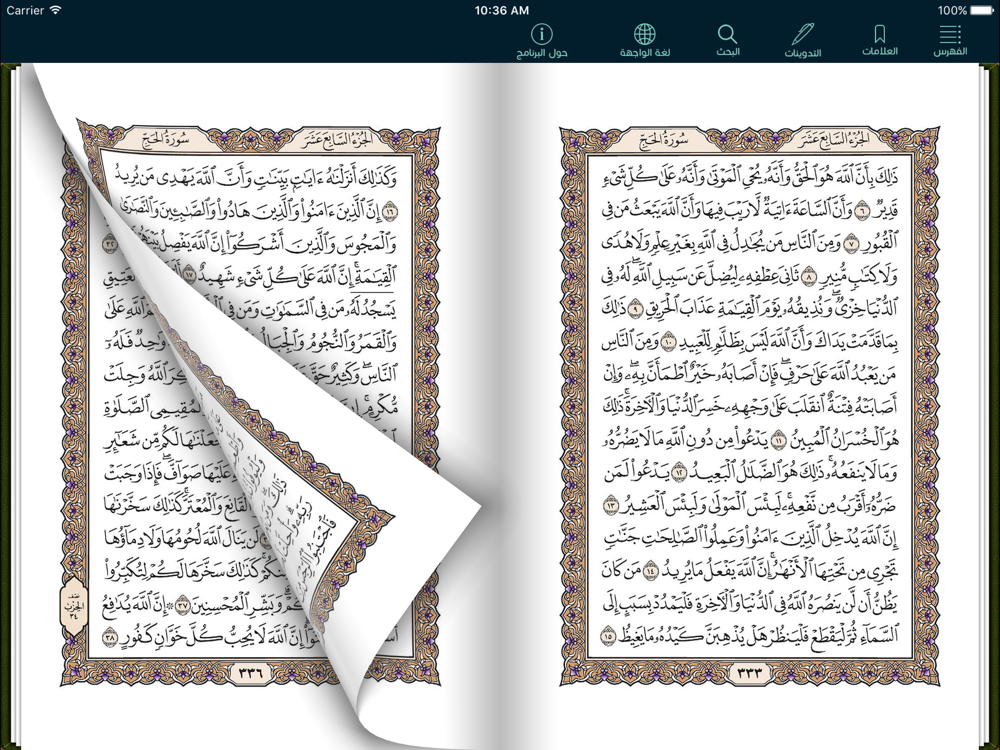 Carrier 10:36 AM 100%
الفهرس العلامات التدوينات البحث لغة الواجهة حول البرنامج
الجُزْءُ السَّابِعَ عَشَرَ سُورَةُ الحَجِّ
ذَٰلِكَ بِأَنَّ ٱللَّهَ هُوَ ٱلْحَقُّ وَأَنَّهُۥ يُحْىِ ٱلْمَوْتَىٰ وَأَنَّهُۥ عَلَىٰ كُلِّ شَىْءٍ
قَدِيرٌ ٦ وَأَنَّ ٱلسَّاعَةَ ءَاتِيَةٌ لَّا رَيْبَ فِيهَا وَأَنَّ ٱللَّهَ يَبْعَثُ مَن فِى
ٱلْقُبُورِ ٧ وَمِنَ ٱلنَّاسِ مَن يُجَٰدِلُ فِى ٱللَّهِ بِغَيْرِ عِلْمٍ وَلَا هُدًى
وَلَا كِتَٰبٍ مُّنِيرٍ ٨ ثَانِىَ عِطْفِهِۦ لِيُضِلَّ عَن سَبِيلِ ٱللَّهِ ۖ لَهُۥ فِى
ٱلدُّنْيَا خِزْىٌ ۖ وَنُذِيقُهُۥ يَوْمَ ٱلْقِيَٰمَةِ عَذَابَ ٱلْحَرِيقِ ٩ ذَٰلِكَ
بِمَا قَدَّمَتْ يَدَاكَ وَأَنَّ ٱللَّهَ لَيْسَ بِظَلَّٰمٍ لِّلْعَبِيدِ ١٠ وَمِنَ ٱلنَّاسِ
مَن يَعْبُدُ ٱللَّهَ عَلَىٰ حَرْفٍ ۖ فَإِنْ أَصَابَهُۥ خَيْرٌ ٱطْمَأَنَّ بِهِۦ ۖ وَإِنْ
أَصَابَتْهُ فِتْنَةٌ ٱنقَلَبَ عَلَىٰ وَجْهِهِۦ خَسِرَ ٱلدُّنْيَا وَٱلْءَاخِرَةَ ۚ ذَٰلِكَ
هُوَ ٱلْخُسْرَانُ ٱلْمُبِينُ ١١ يَدْعُوا۟ مِن دُونِ ٱللَّهِ مَا لَا يَضُرُّهُۥ
وَمَا لَا يَنفَعُهُۥ ۚ ذَٰلِكَ هُوَ ٱلضَّلَٰلُ ٱلْبَعِيدُ ١٢ يَدْعُوا۟ لَمَن
ضَرُّهُۥٓ أَقْرَبُ مِن نَّفْعِهِۦ ۚ لَبِئْسَ ٱلْمَوْلَىٰ وَلَبِئْسَ ٱلْعَشِيرُ ١٣
إِنَّ ٱللَّهَ يُدْخِلُ ٱلَّذِينَ ءَامَنُوا۟ وَعَمِلُوا۟ ٱلصَّٰلِحَٰتِ جَنَّٰتٍ
تَجْرِى مِن تَحْتِهَا ٱلْأَنْهَٰرُ ۚ إِنَّ ٱللَّهَ يَفْعَلُ مَا يُرِيدُ ١٤ مَن كَانَ
يَظُنُّ أَن لَّن يَنصُرَهُ ٱللَّهُ فِى ٱلدُّنْيَا وَٱلْءَاخِرَةِ فَلْيَمْدُدْ بِسَبَبٍ إِلَى
ٱلسَّمَآءِ ثُمَّ لْيَقْطَعْ فَلْيَنظُرْ هَلْ يُذْهِبَنَّ كَيْدُهُۥ مَا يَغِيظُ ١٥
٣٣٣
الجُزْءُ السَّابِعَ عَشَرَ سُورَةُ الحَجِّ
وَكَذَٰلِكَ أَنزَلْنَٰهُ ءَايَٰتٍۭ بَيِّنَٰتٍ وَأَنَّ ٱللَّهَ يَهْدِى مَن يُرِيدُ
١٦ إِنَّ ٱلَّذِينَ ءَامَنُوا۟ وَٱلَّذِينَ هَادُوا۟ وَٱلصَّٰبِـِٔينَ وَٱلنَّصَٰرَىٰ
وَٱلْمَجُوسَ وَٱلَّذِينَ أَشْرَكُوٓا۟ إِنَّ ٱللَّهَ يَفْصِلُ ٣٢
ٱلْقِيَٰمَةِ ۚ إِنَّ ٱللَّهَ عَلَىٰ كُلِّ شَىْءٍ شَهِيدٌ ١٧ ٱلْعَتِيقِ
يَسْجُدُ لَهُۥ مَن فِى ٱلسَّمَٰوَٰتِ وَمَن فِى ٱللَّهِ عَلَىٰ
وَٱلْقَمَرُ وَٱلنُّجُومُ وَٱلْجِبَالُ وَٰحِدٌ فَلَهُۥٓ
ٱلنَّاسِ ۖ وَكَثِيرٌ حَقَّ ٱللَّهُ وَجِلَتْ
مُّكْرِمٍ ۚ ٱلصَّلَوٰةِ
لَكُم مِّن شَعَٰٓئِرِ
عَلَيْهَا صَوَآفَّ ۖ فَإِذَا وَجَبَتْ
ٱلْقَانِعَ وَٱلْمُعْتَرَّ ۚ كَذَٰلِكَ سَخَّرْنَٰهَا
لَن يَنَالَ ٱللَّهَ لُحُومُهَا وَلَا دِمَآؤُهَا
كَذَٰلِكَ سَخَّرَهَا لَكُمْ لِتُكَبِّرُوا۟
وَبَشِّرِ ٱلْمُحْسِنِينَ ٣٧ ۞ إِنَّ ٱللَّهَ يُدَٰفِعُ
إِنَّ ٱللَّهَ لَا يُحِبُّ كُلَّ خَوَّانٍ كَفُورٍ ٣٨
الحزب
٣٤
٣٣٦